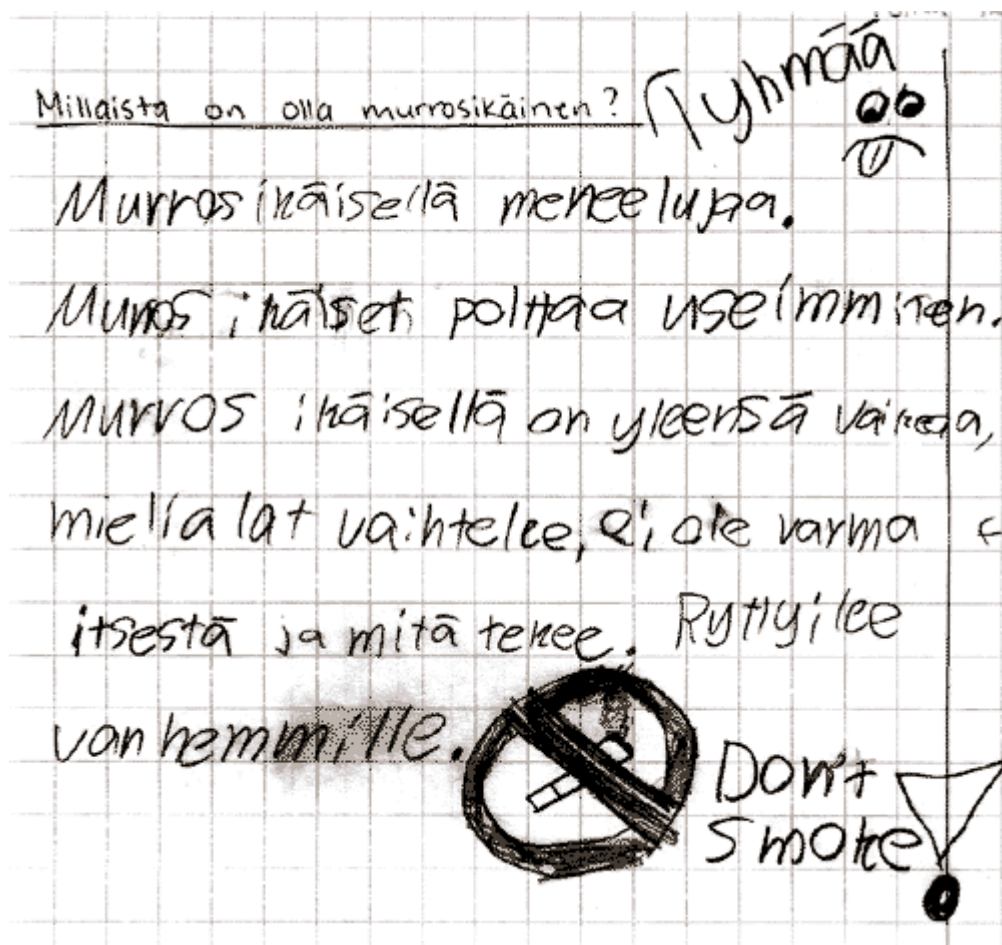 Millaista on olla murrosikäinen?
Tyhmää
Murrosikäisellä menee lujaa.
Murros ikäiset polttaa useimmiten.
Murros ikäisellä on yleensä vaikeaa,
mielialat vaihtelee, ei ole varma
itsestä ja mitä tekee. Ryttyilee
vanhemmille.
Don't
Smoke